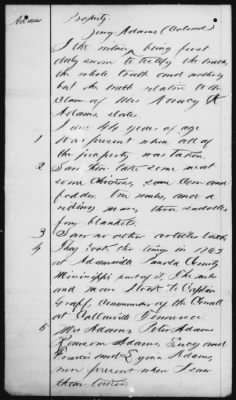 Adams
Property.
Jerry Adams (Colored)
I the witness being first
duly sworn to testify the truth
the whole truth and nothing
but the truth relative to the
Claim of Mrs Nancy
Adams, states
I am 44 years of age
1 Was present when all of
the property was taken.
2 Saw them take some meat
some chickens, some corn and
fodder, two mules, and a
riding mare, three saddles
four blankets
3 Saw no other articles taken
4 They took the things in 1863
at Adamsville Panola County
Mississippi part of it. The mules
and mare I took to Captain
Graff, Commander of the
at Colliersville Tennessee
5 Mrs Adams, Peter Adams
Ransom Adams, Lucy and
Francis and Adams,
were present when I saw
them taken